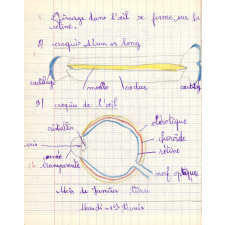 L'image dans l'œil se forme sur la
rétine.
2) croquis d'un os long
cartilage moelle os dur cartilage
3) croquis de l'œil
sclérotique
cristallin
choroïde
iris
rétine
cornée
transparente
nerf optique
Mois de Janvier
Mardi